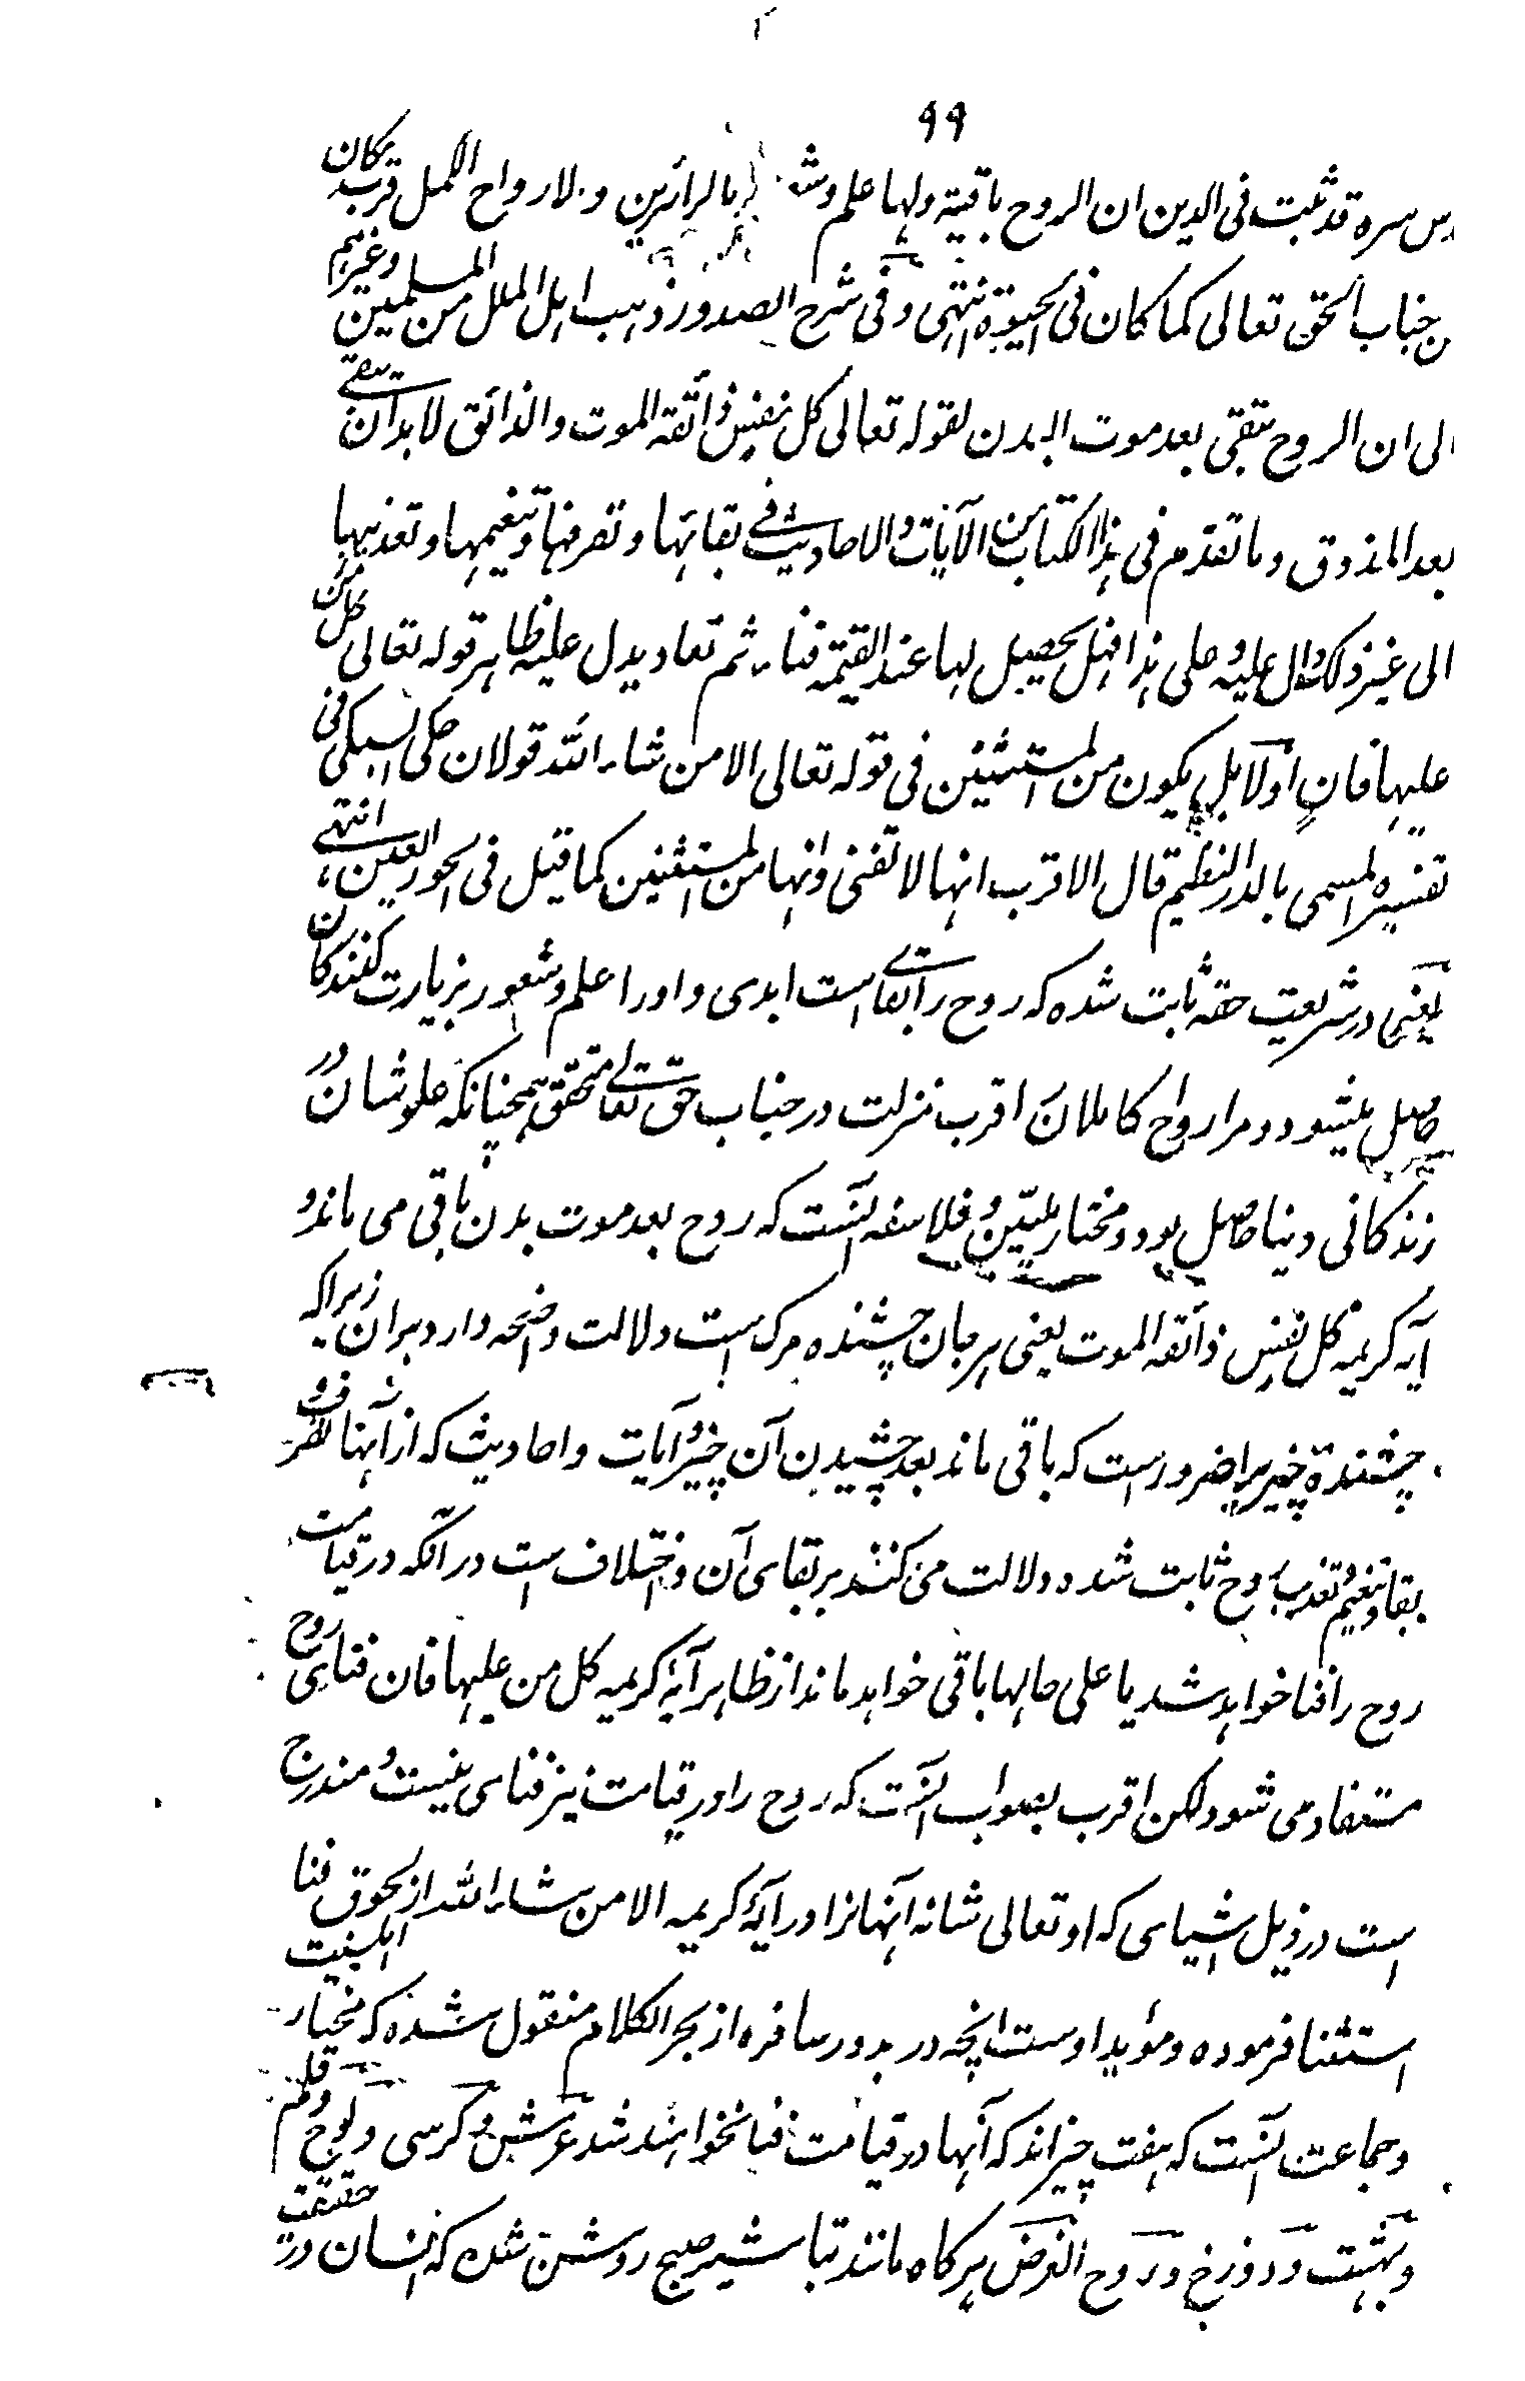 ۹۹
دس سره قد ثبت فی الدین ان الروح باقیة ولها علم وشعور بالزائرین ولارواح الکمل قرب مکان
من جناب الحق تعالی کما کان فی الحیوة انتهی وفی شرح الصدور ذهب اهل الملل من المسلمین وغیرهم
الی ان الروح تبقی بعد موت البدن لقوله تعالی کل نفس ذائقة الموت والذائق لابد ان یبقی
بعد المذوق وما تقدم فی هذا الکتاب من الآیات والاحادیث فی بقائها وتصرفها وتنعیمها وتعذیبها
الی غیر ذلک دال علیه وعلی هذا فهل یحصل لها عند القیمة فناء ثم تعاد یدل علیه ظاهر قوله تعالی کل من
علیها فان اولا بل یکون من المستثنین فی قوله تعالی الا من شاء الله قولان حکی السبکی فی
تفسیره المسمی بالدر النظیم قال الاقرب انها لا تفنی وانها من المستثنین کما قیل فی الحور العین انتهی
یعنی در شریعت حقه ثابت شده که روح را بقای است ابدی و او را علم و شعور بزیارت کنندکان
حاصل میشود و مر ارواح کاملان اقرب منزلت در جناب حق تعالی متحقق همچنانکه علو شان در
زندکانی دنیا حاصل بود و مختار ملیین و فلاسفه انست که روح بعد موت بدن باقی می ماند و
آیه کریمه کل نفس ذائقة الموت یعنی هر جان چشنده مرک است دلالت واضحه دارد بران زیرا که
چشندهٔ چیز را ضرور است که باقی ماند بعد چشیدن آن چیز و آیات و احادیث که از آنها تصرف و
بقا و تنعیم و تعذیب روح ثابت شده دلالت می کنند بر بقای آن و اختلاف است در آنکه در قیامت
روح را فنا خواهد شد یا علی حالها باقی خواهد ماند از ظاهر آیهٔ کریمه کل من علیها فان فنای روح
مستفاد می شود ولکن اقرب بصواب انست که روح را در قیامت نیز فنای نیست و مندرج
است در ذیل اشیای که او تعالی شانه آنها را در آیهٔ کریمه الا من شاء الله از لحوق فنا
استثنا فرموده و مؤید اوست انچه در بدور سافره از بحر الکلام منقول شده که مختار اهل سنت
و جماعت انست که هفت چیز اند که آنها در قیامت فنا نخواهند شد عرش و کرسی و لوح و قلم
و بهشت و دوزخ و روح الغرض هرکاه مانند تباشیر صبح روشن شد که انسان در حقیقت